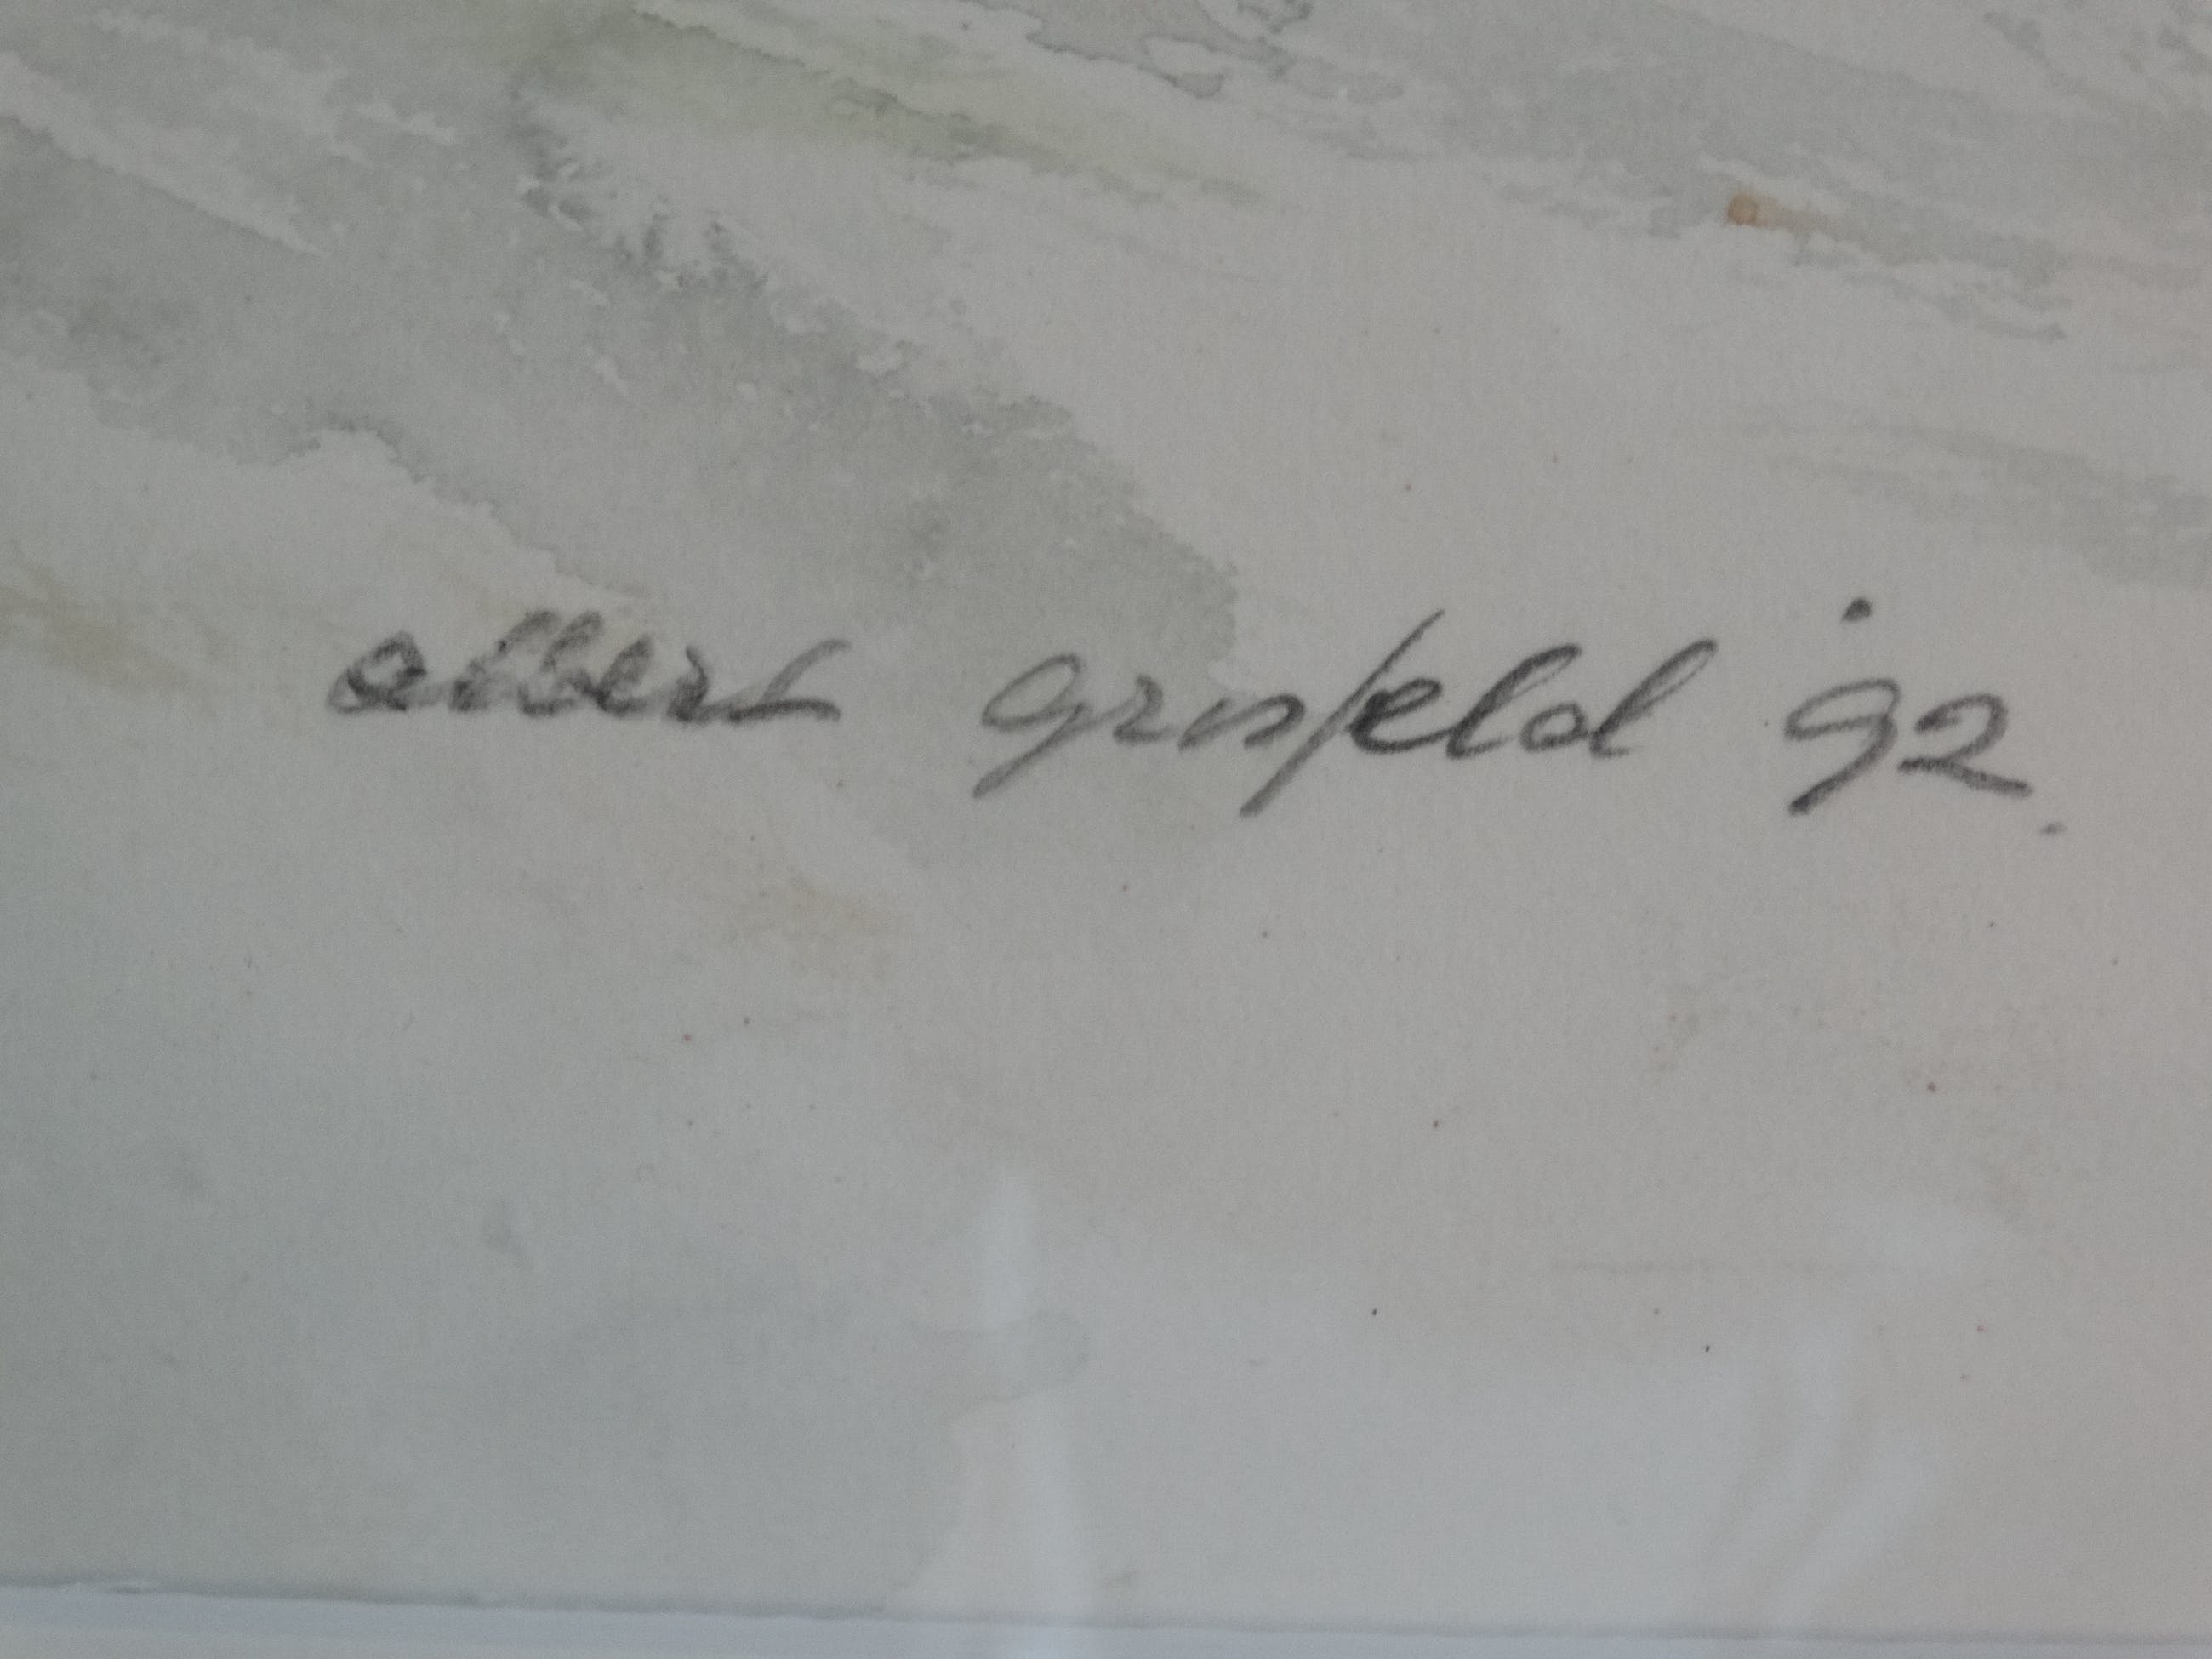 albert grisfeld '92.